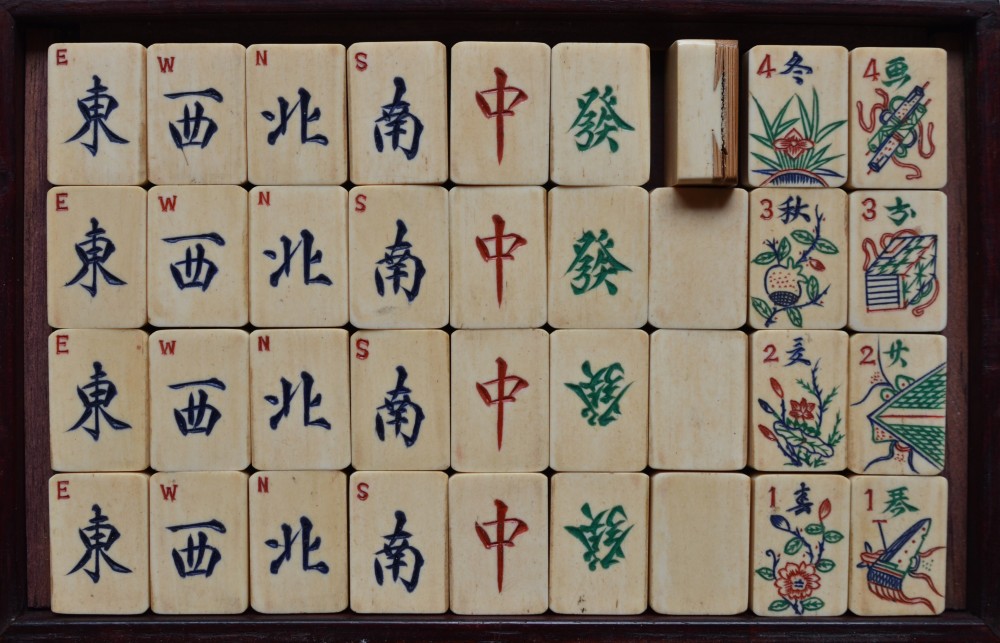 E 東 W 西 N 北 S 南 中 發 4 冬 4 画
E 東 W 西 N 北 S 南 中 發 3 秋 3
E 東 W 西 N 北 S 南 中 發 2 夏 2
E 東 W 西 N 北 S 南 中 發 1 春 1 琴